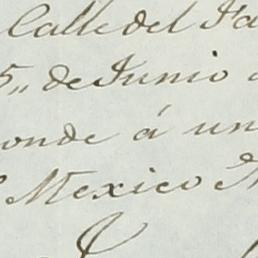 Calle del Fa
5,, de Junio
onde á un
Mexico N